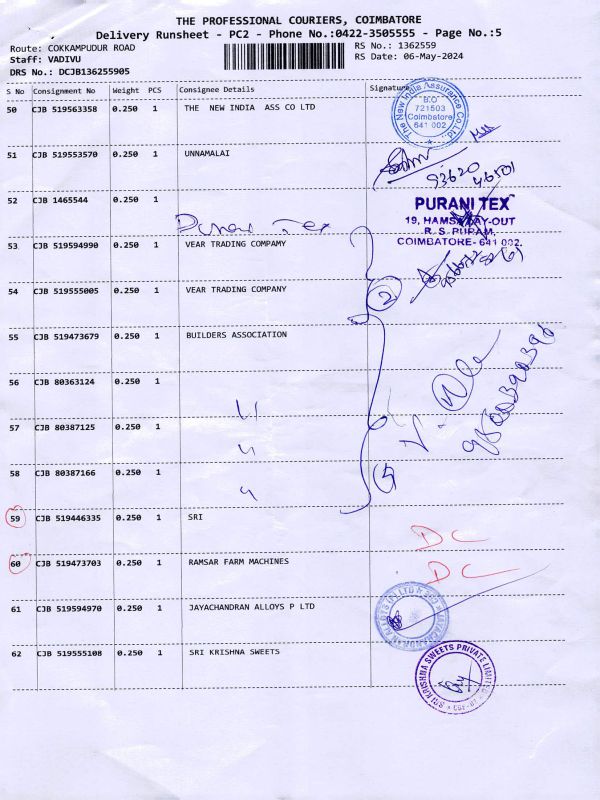 THE PROFESSIONAL COURIERS, COIMBATORE
Delivery Runsheet - PC2 - Phone No.:0422-3505555 - Page No.:5
Route: COKKAMPUDUR ROAD
RS No.: 1362559
Staff: VADIVU
RS Date: 06-May-2024
DRS No.: DCJB136255905
S No Consignment No Weight PCS Consignee Details Signature
50 CJB 519563358 0.250 1 THE NEW INDIA ASS CO LTD
The New India Assurance Co Ltd
B.O
721503
Coimbatore
641 002
51 CJB 519553570 0.250 1 UNNAMALAI
93620
46501
52 CJB 1465544 0.250 1
Purani Tex
PURANI TEX
19, HAMSA LAY-OUT
R. S. PURAM,
COIMBATORE- 641 002.
53 CJB 519594990 0.250 1 VEAR TRADING COMPAMY
54 CJB 519555005 0.250 1 VEAR TRADING COMPAMY
2
55 CJB 519473679 0.250 1 BUILDERS ASSOCIATION
56 CJB 80363124 0.250 1
57 CJB 80387125 0.250 1
58 CJB 80387166 0.250 1
59 CJB 519446335 0.250 1 SRI
DC
60 CJB 519473703 0.250 1 RAMSAR FARM MACHINES
DC
61 CJB 519594970 0.250 1 JAYACHANDRAN ALLOYS P LTD
62 CJB 519555108 0.250 1 SRI KRISHNA SWEETS
SRI KRISHNA SWEETS PRIVATE LIMITED